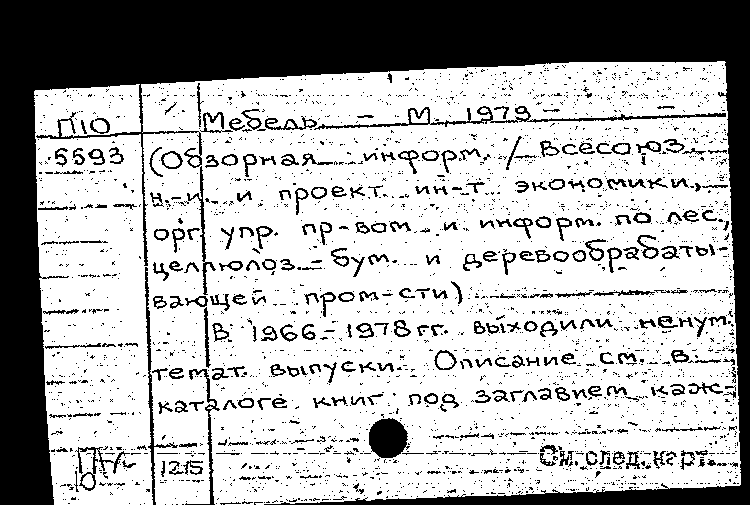 П10 Мебель. – М., 1979 –
5593 (Обзорная информ. / Всесоюз.
н.-и. и проект. ин-т экономики,
орг. упр. пр-вом и информ. по лес.,
целлюлоз.-бум. и деревообрабаты-
вающей пром-сти)
В 1966–1978 гг. выходили ненум.
темат. выпуски. Описание см. в
каталоге книг под заглавием каж-
1215 См. след. карт.